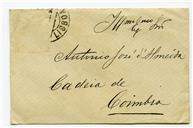 LISBOA
Illmo Exmo Snr
Antonio José d'Almeida
Cadeia de
Coimbra